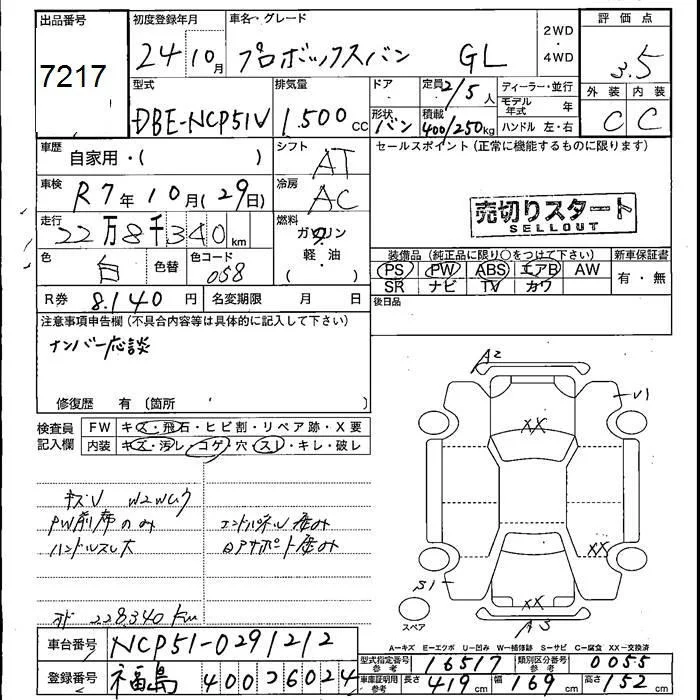 出品番号 初度登録年月日 車名・グレード 評価点
7217 24 10月 プロボックスバン GL 2WD・4WD 3.5
型式 排気量 ドア 定員 ディーラー・並行 外装 内装
DBE-NCP51V 1.500cc 2/5人 モデル年式 年 C C
形状 バン 積載 400/250kg ハンドル 左・右
車歴 自家用・( ) シフト AT セールスポイント(正常に機能するものに限ります)
車検 R7年10月(29日) 冷房 AC
売切りスタート
SELLOUT
走行 22万8千340km 燃料 ガソリン
軽・油
( )
色 白 色替 色コード 058
装備品(純正品に限り○をつけて下さい) 新車保証書
PS PW ABS エアB AW 有・無
SR ナビ TV カワ
R券 8.140円 名変期限 月 日 後日品
注意事項申告欄(不具合内容等は具体的に記入して下さい)
ナンバー応談
修復歴 有(箇所 )
検査員記入欄 FW キズ・飛石・ヒビ割・リペア跡・X要
内装 キズ・汚レ・コゲ・穴・スレ・キレ・破レ
A2
U1
XX
キズU W2Wウク
PW前席のみ エンドパネル歪み
ハンドルスレ大 ロアサポート歪み
XX
S1
XX
A3
スペア
228.340km
A=キズ E=エクボ U=凹み W=補修跡 S=サビ C=腐食 XX=交換済
車台番号 NCP51-0291212
型式指定番号 参考 16517 類別区分番号 参考 0055
登録番号 福島 400 2 6024
車庫証明用 参考 長さ 419cm 幅 169cm 高さ 152cm